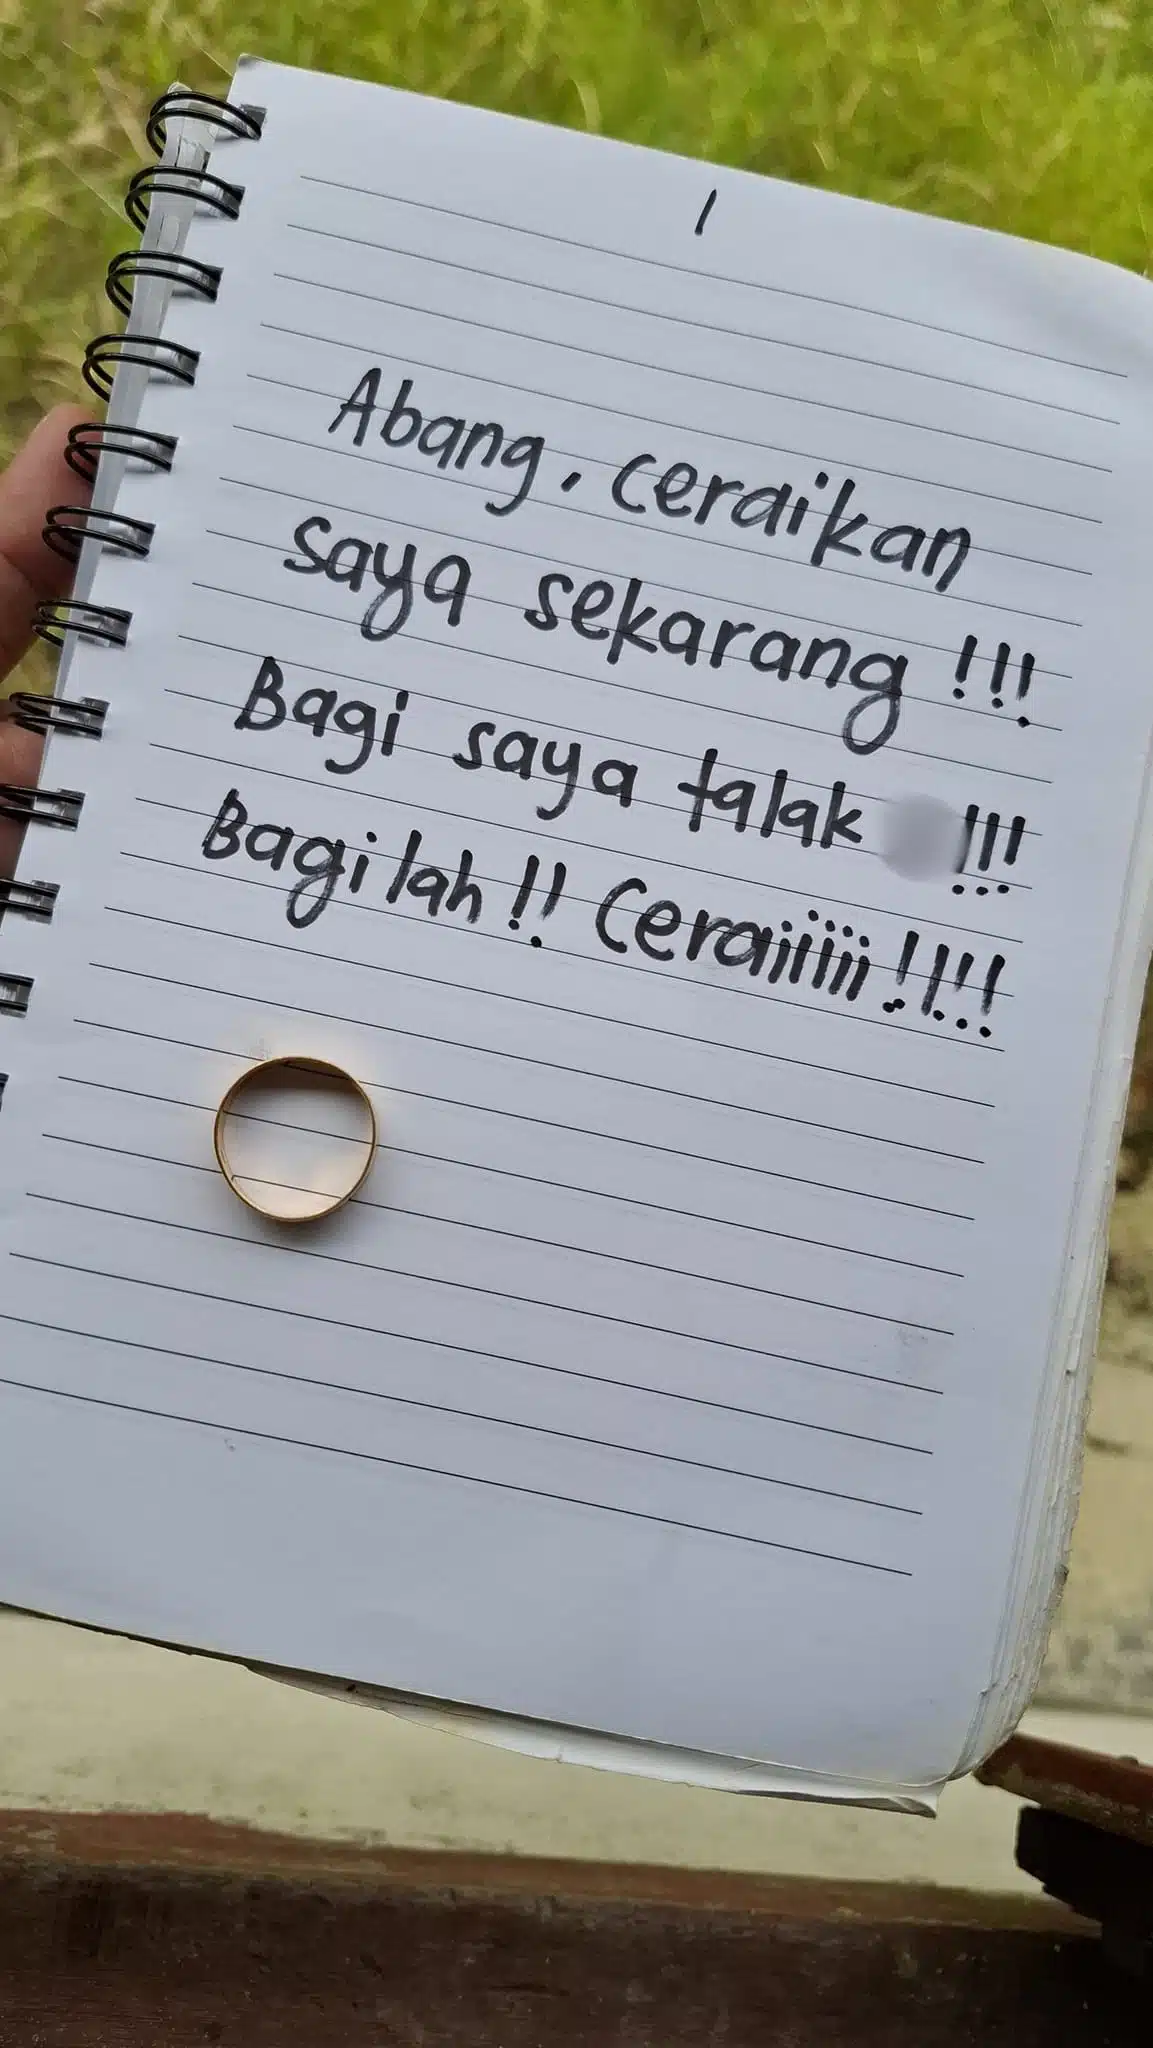 1
Abang, ceraikan
saya sekarang !!!
Bagi saya talak !!!
Bagilah !! Ceraiiiii !!!!